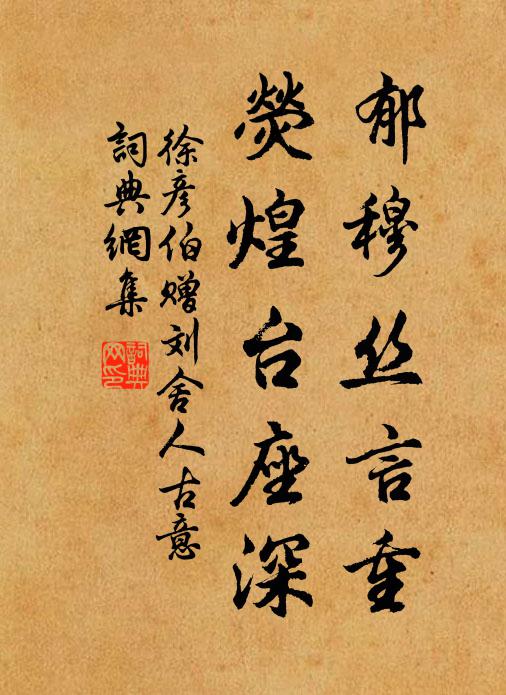 郁穆丝言重
荧煌台座深
徐彦伯赠刘舍人古意
詞典網集
詞典網印